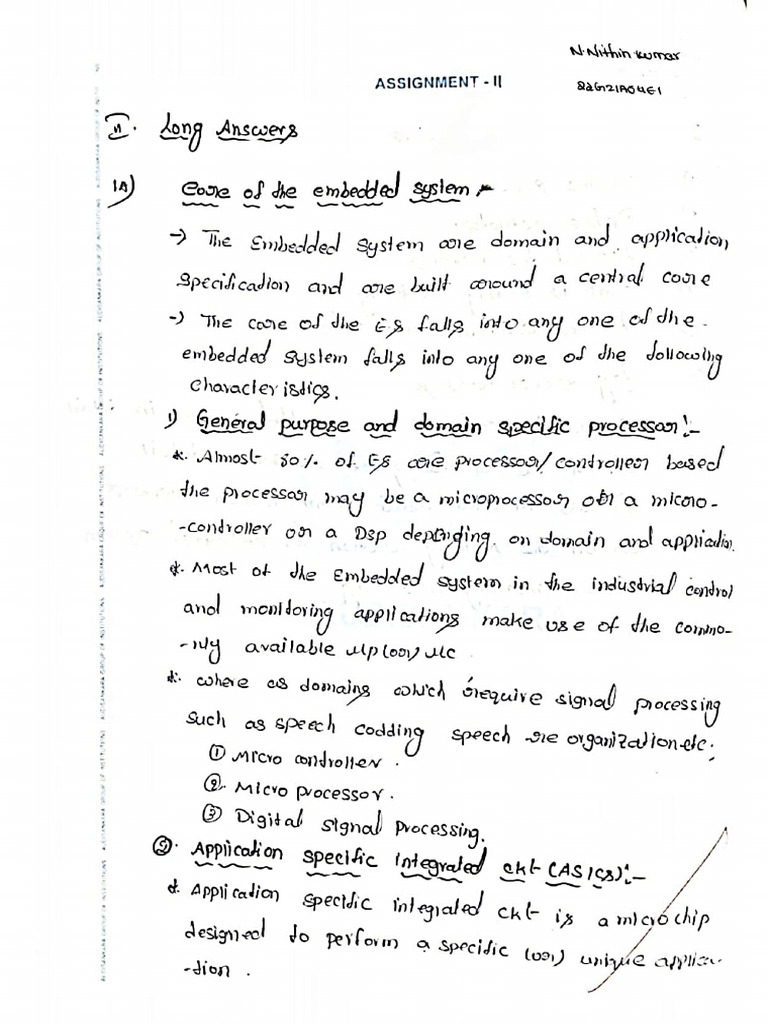 N. Nithin kumar
ASSIGNMENT - II
II. Long Answers
1A) Core of the embedded system :-
-> The Embedded System are domain and application
specification and are built around a central core
-> The core of the ES falls into any one of the
embedded system falls into any one of the following
characteristics.
1) General purpose and domain specific processor :-
* Almost 80% of ES are processor/controller based
the processor may be a microprocessor or a micro-
-controller or a Dsp depending on domain and application
* Most of the Embedded system in the industrial control
and monitoring applications make use of the commo-
-nly available up (or) uc
* where as domains which require signal processing
such as speech codding speech re organization etc;
① Micro controller.
② Micro processor.
③ Digital signal Processing.
②. Application specific integrated ckt (ASICs) :-
* Application specific integrated ckt is a microchip
designed to perform a specific (or) unique applica-
-tion.